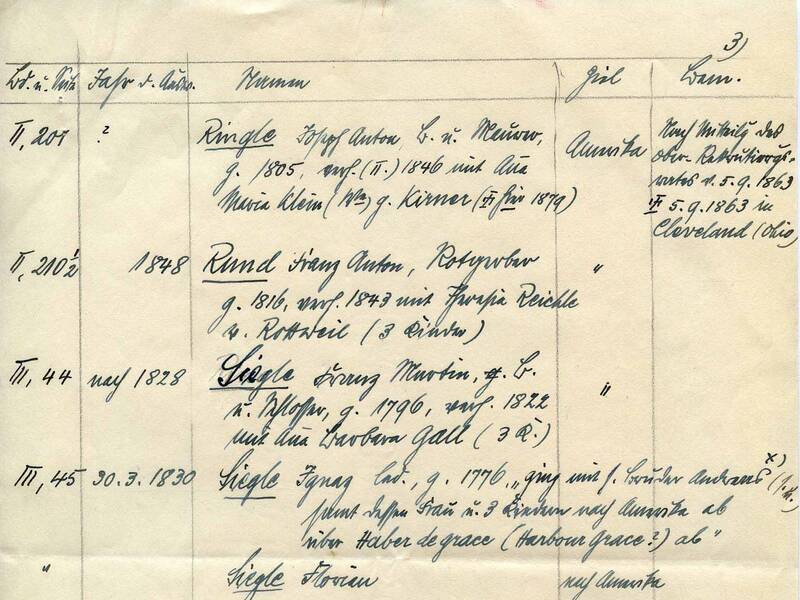 3)
Bd. u. Seite Jahr d. Ausw. Namen Ziel Bem.
II, 201 ? Ringle Joseph Anton, B. u. Maurer, Amerika Nach Mitteilg des
g. 1805, verh. (II.) 1846 mit Anna Ober-Rekrutierungs-
Maria Klein (Wwe) g. Kirner († hier 1879) rates v. 5.9.1863
† 5.9.1863 in
Cleveland (Ohio)
II, 210 1/2 1848 Rund Franz Anton, Rotgerber "
g. 1816, verh. 1843 mit Theresia Reichle
v. Rottweil (3 Kinder)
III, 44 nach 1828 Siegle Franz Martin, B. "
u. Schlosser, g. 1796, verh. 1822
mit Anna Barbara Gall (3 K.)
III, 45 30.3.1830 Siegle Ignaz led., g. 1776, „ging mit s. Bruder Andreas x)
samt dessen Frau u. 3 Kindern nach Amerika ab
über Haber de grace (Harbour Grace?) ab"
" Siegle Florian nach Amerika